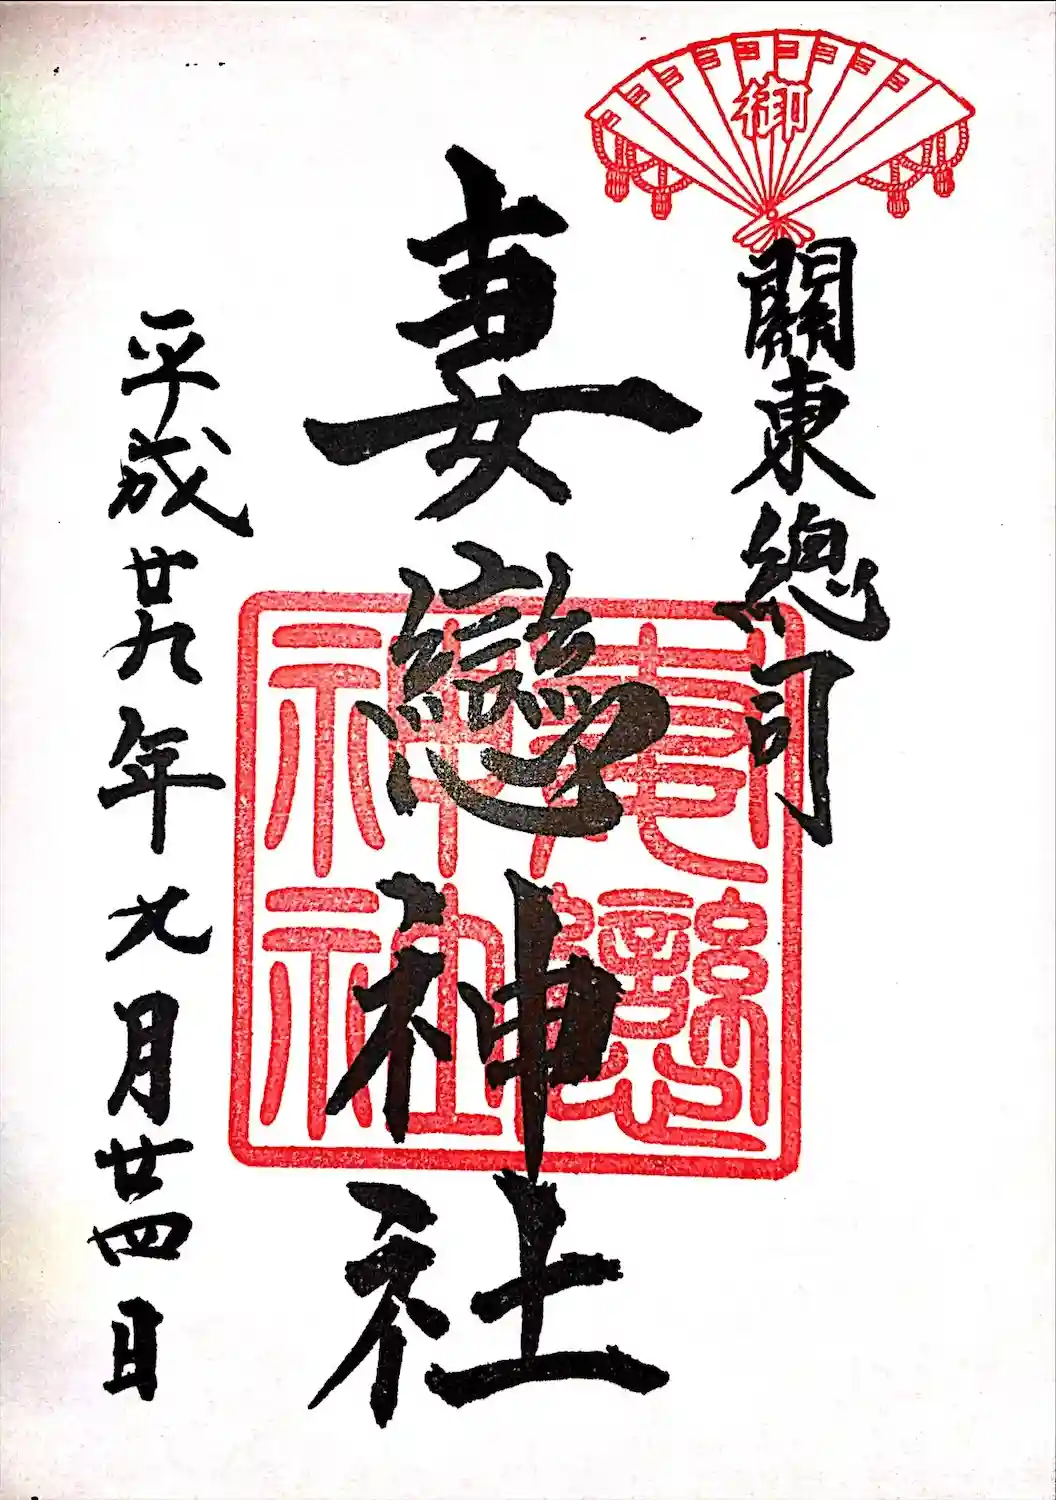 御
關東總司
妻戀神社
妻戀
神社
平成廿九年九月廿四日